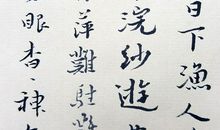 日下漁人
浣紗遊
萍難駐
眼杳〻神